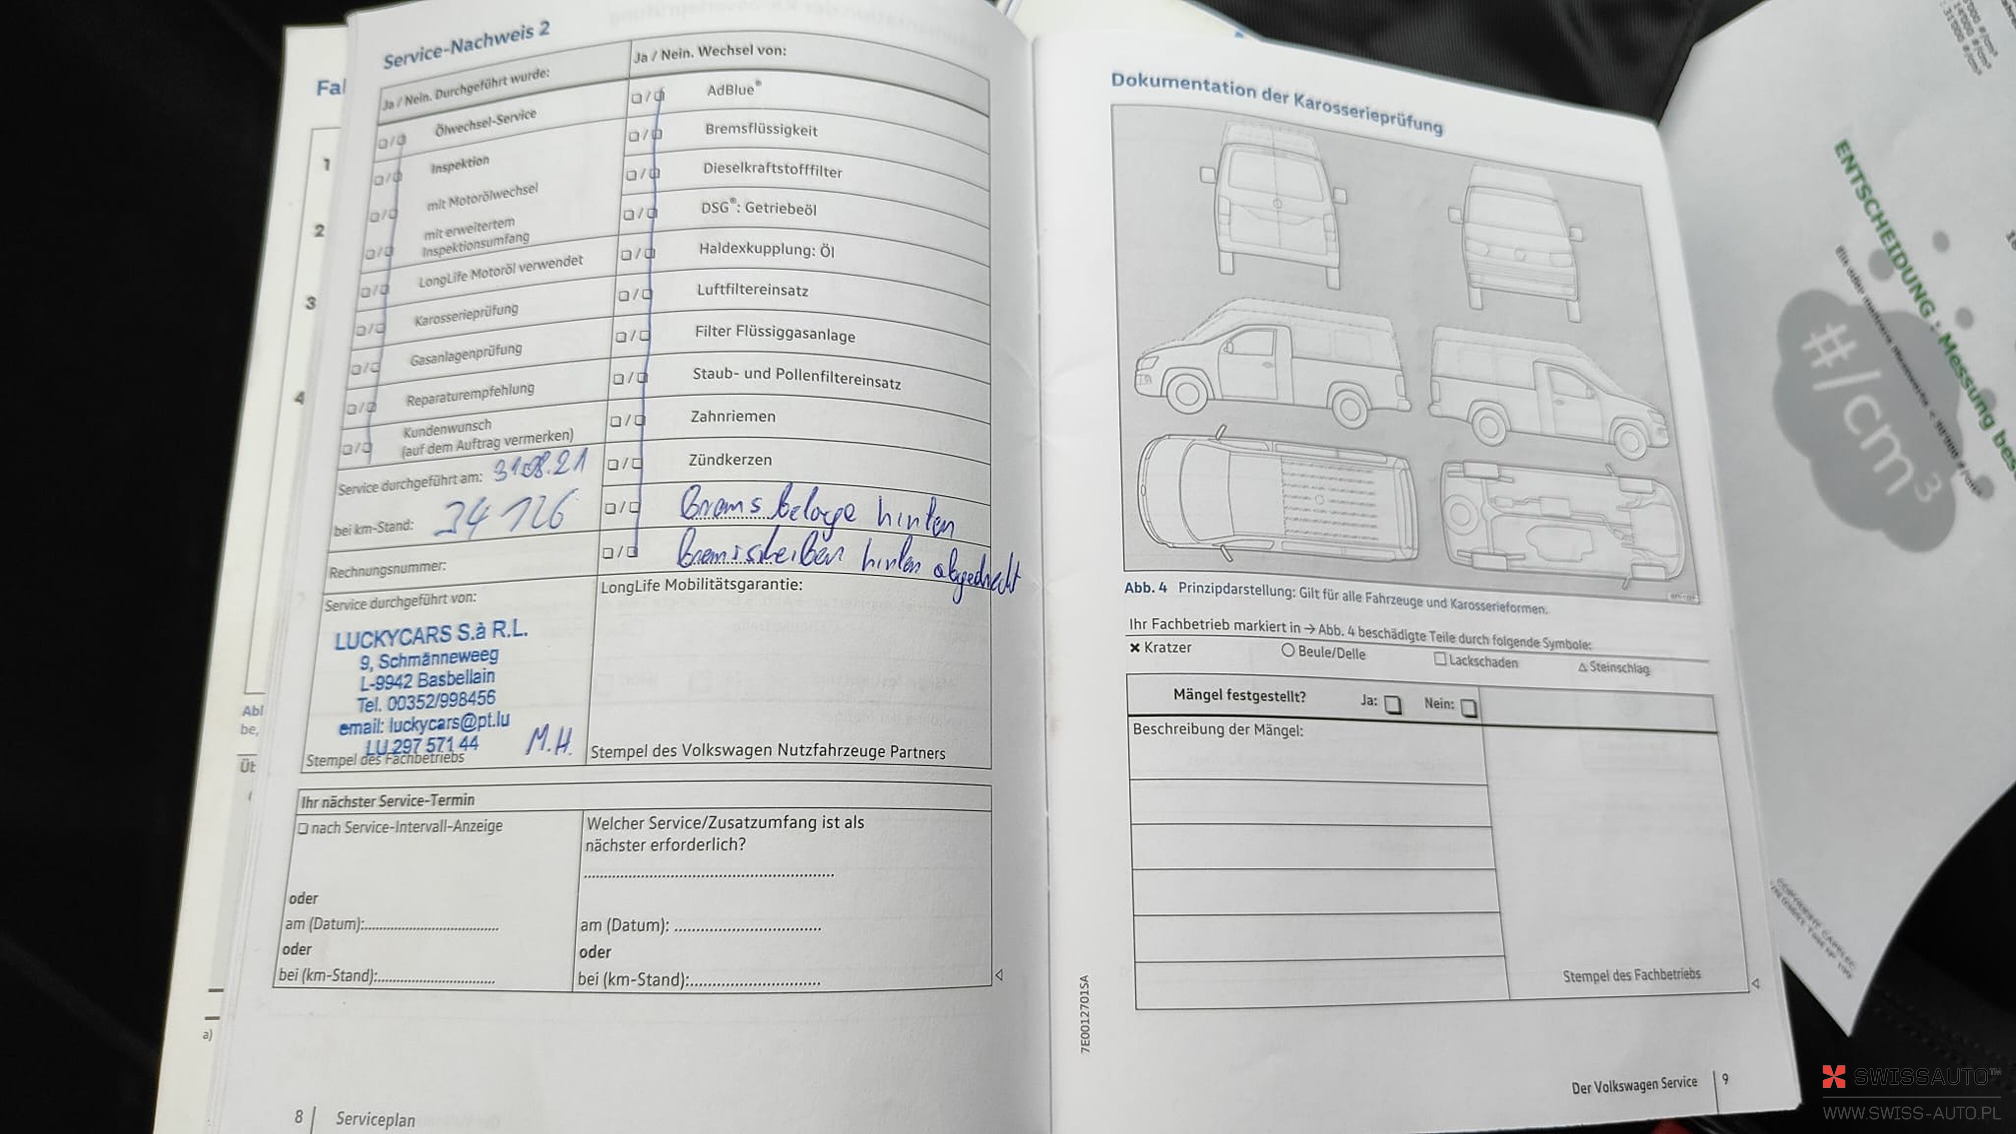 Service-Nachweis 2
Ja / Nein. Durchgeführt wurde:
Ja / Nein. Wechsel von:
Ölwechsel-Service
AdBlue®
Inspektion
Bremsflüssigkeit
mit Motorölwechsel
Dieselkraftstofffilter
mit erweitertem
Inspektionsumfang
DSG®: Getriebeöl
LongLife Motoröl verwendet
Haldexkupplung: Öl
Karosserieprüfung
Luftfiltereinsatz
Gasanlagenprüfung
Filter Flüssiggasanlage
Reparaturempfehlung
Staub- und Pollenfiltereinsatz
Kundenwunsch
(auf dem Auftrag vermerken)
Zahnriemen
Service durchgeführt am: 31.08.21
Zündkerzen
bei km-Stand: 34 126
Bremsbeläge hinten
Rechnungsnummer:
Bremsscheiben hinten abgedreht
Service durchgeführt von:
LongLife Mobilitätsgarantie:
LUCKYCARS S.à R.L.
9, Schmänneweeg
L-9942 Basbellain
Tel. 00352/998456
email: luckycars@pt.lu
LU 297 571 44
M.H.
Stempel des Fachbetriebs
Stempel des Volkswagen Nutzfahrzeuge Partners
Ihr nächster Service-Termin
nach Service-Intervall-Anzeige
Welcher Service/Zusatzumfang ist als
nächster erforderlich?
oder
am (Datum):
am (Datum):
oder
oder
bei (km-Stand):
bei (km-Stand):
8 | Serviceplan
Fal
1
2
3
4
Abl
be,
Üt
a)
Dokumentation der Karosserieprüfung
Abb. 4 Prinzipdarstellung: Gilt für alle Fahrzeuge und Karosserieformen.
Ihr Fachbetrieb markiert in → Abb. 4 beschädigte Teile durch folgende Symbole:
× Kratzer
○ Beule/Delle
□ Lackschaden
△ Steinschlag
Mängel festgestellt? Ja: Nein:
Beschreibung der Mängel:
Stempel des Fachbetriebs
7E0012701SA
Der Volkswagen Service | 9
ENTSCHEIDUNG : Messung bes
#/cm³
SWISSAUTO™
WWW.SWISS-AUTO.PL